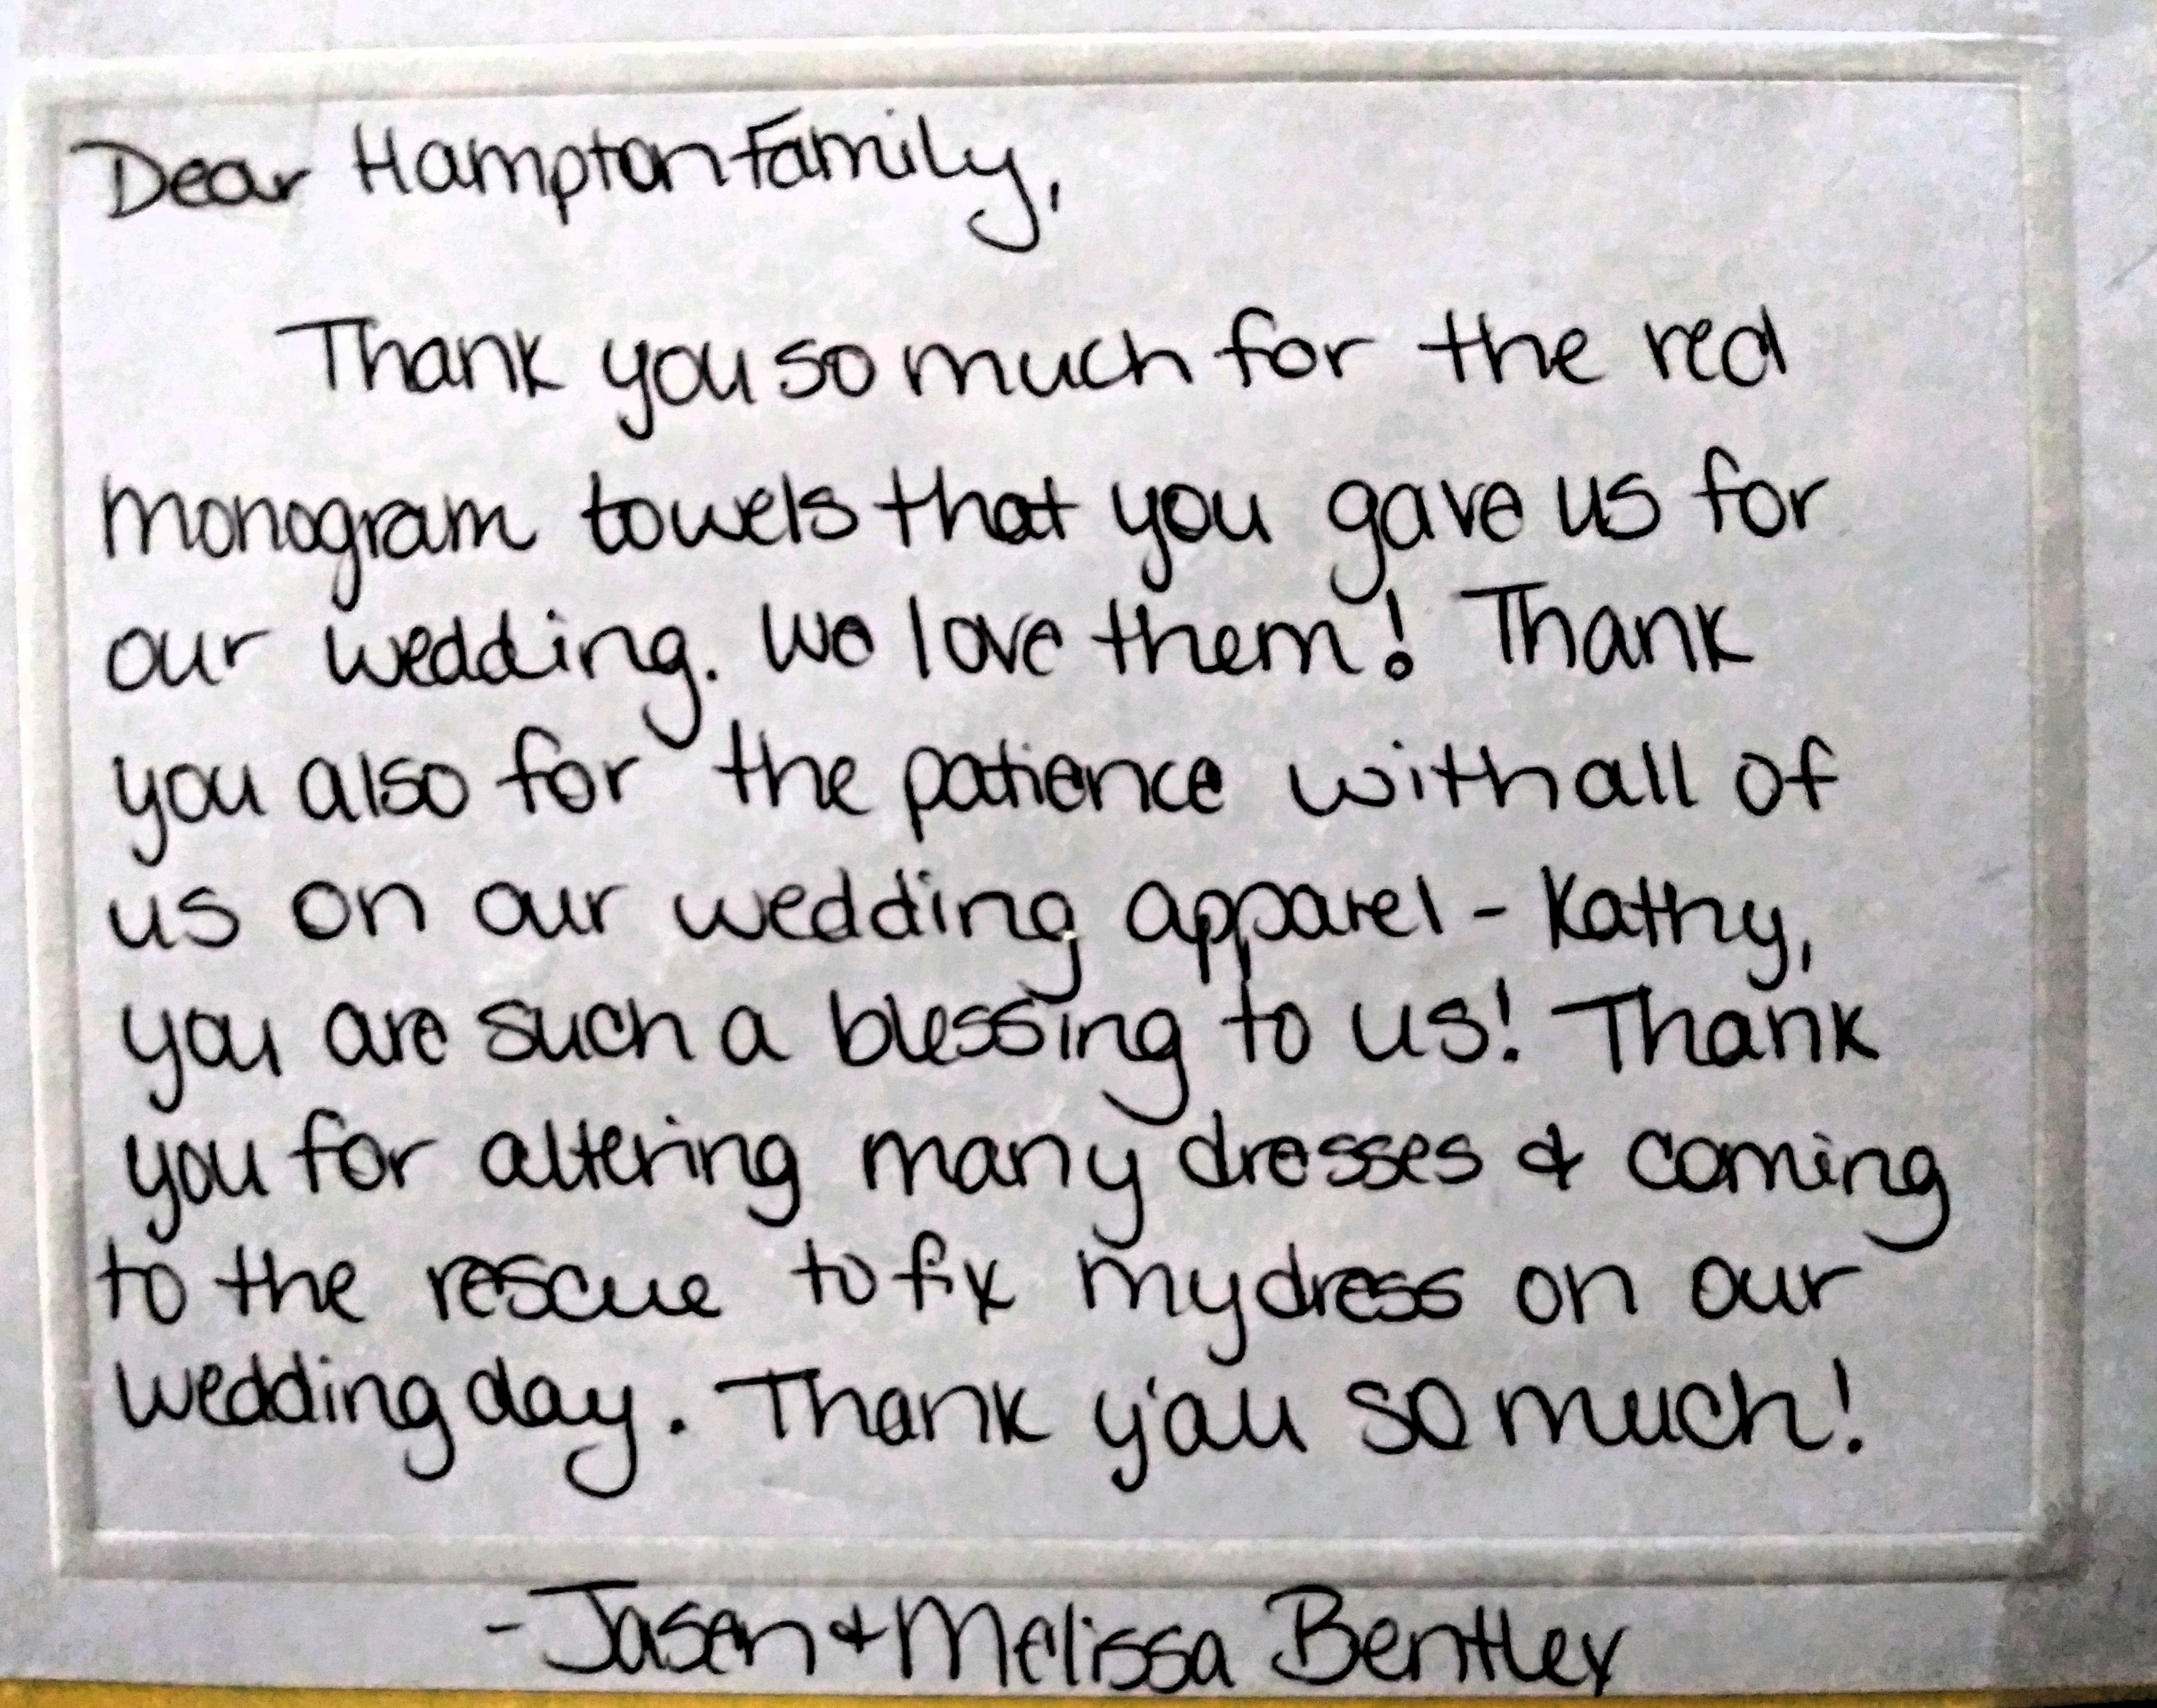 Dear Hampton Family,
Thank you so much for the red
monogram towels that you gave us for
our wedding. We love them! Thank
you also for the patience with all of
us on our wedding apparel - Kathy,
you are such a blessing to us! Thank
you for altering many dresses & coming
to the rescue to fix my dress on our
wedding day. Thank you so much!
- Jasen & Melissa Bentley